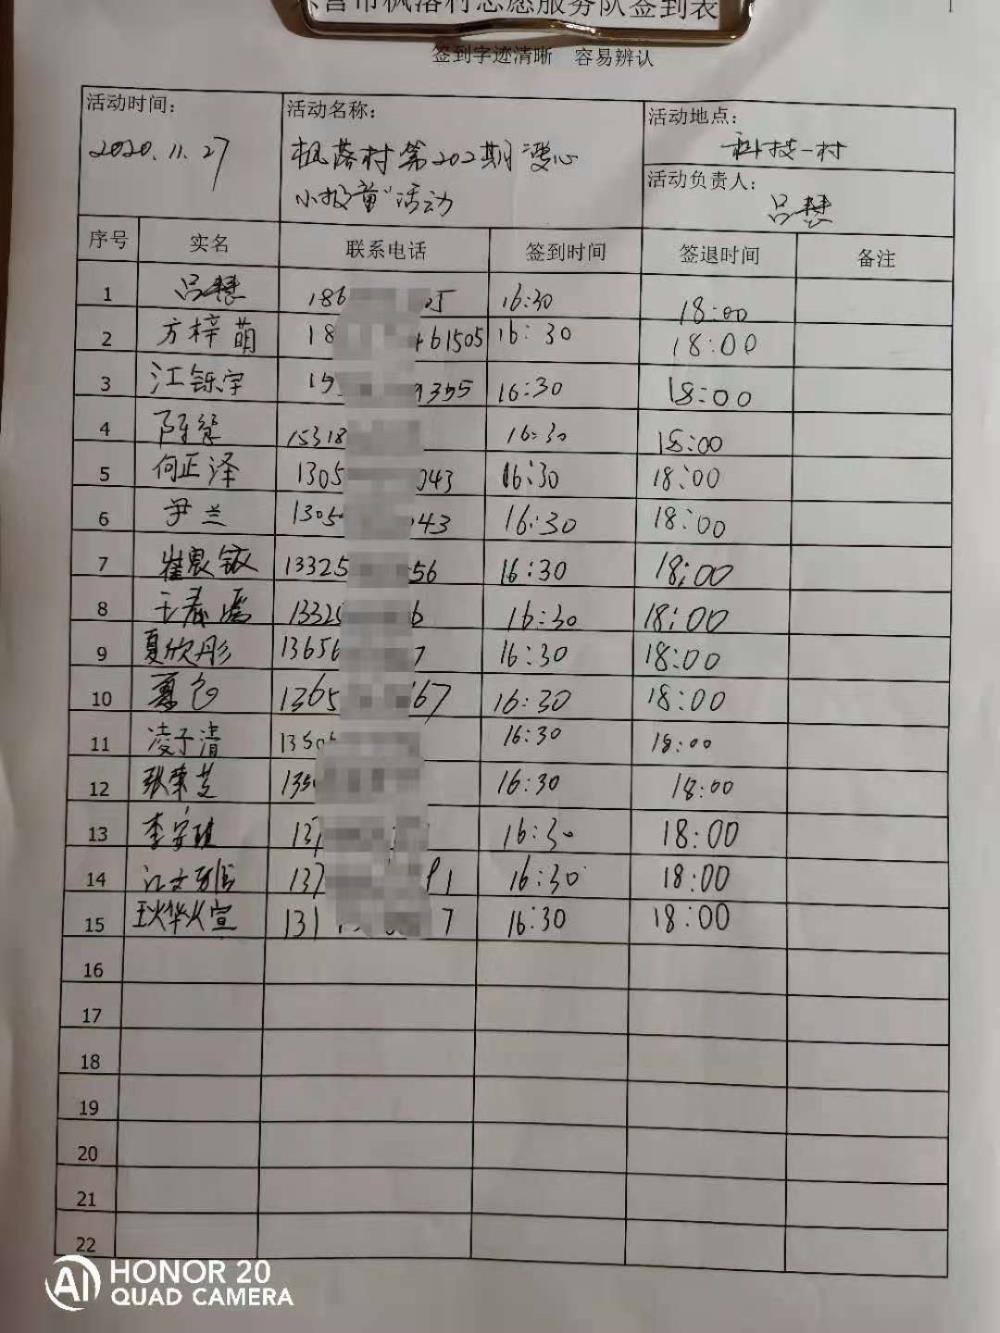 营市枫落村志愿服务队签到表
签到字迹清晰 容易辨认
活动时间: 活动名称: 活动地点:
2020.11.27 枫落村第202期"爱心 科技一村
小报童"活动 活动负责人:
吕慧
序号 实名 联系电话 签到时间 签退时间 备注
1 吕慧 186 05 16:30 18:00
2 方梓萌 18 461505 16:30 18:00
3 江铄宇 15 9355 16:30 18:00
4 15318 16:30 18:00
5 何正泽 1305 043 16:30 18:00
6 尹兰 1305 043 16:30 18:00
7 崔 13325 56 16:30 18:00
8 王春 1332 6 16:30 18:00
9 夏欣彤 13656 7 16:30 18:00
10 夏 1365 67 16:30 18:00
11 凌子清 1350 16:30 18:00
12 张荣芝 135 16:30 18:00
13 李安 13 16:30 18:00
14 江 137 91 16:30 18:00
15 131 7 16:30 18:00
16
17
18
19
20
21
22
AI HONOR 20
QUAD CAMERA